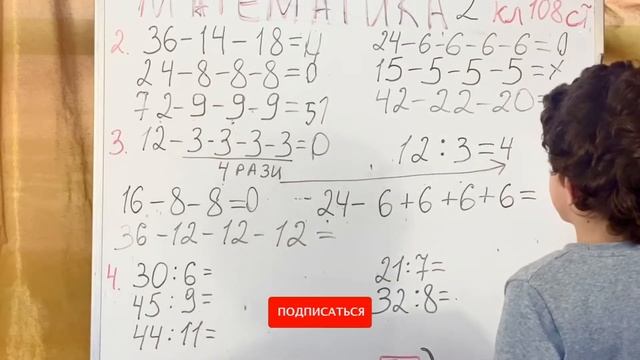 МАТЕМАТИКА 2 кл 108 ст.
2. 36-14-18=4
24-6-6-6-6=0
24-8-8-8=0
15-5-5-5=x
72-9-9-9=51
42-22-20=
3. 12-3-3-3-3=0
12:3=4
4 РАЗИ
16-8-8=0
24-6+6+6+6=
36-12-12-12=
4. 30:6=
21:7=
45:9=
32:8=
44:11=
ПОДПИСАТЬСЯ